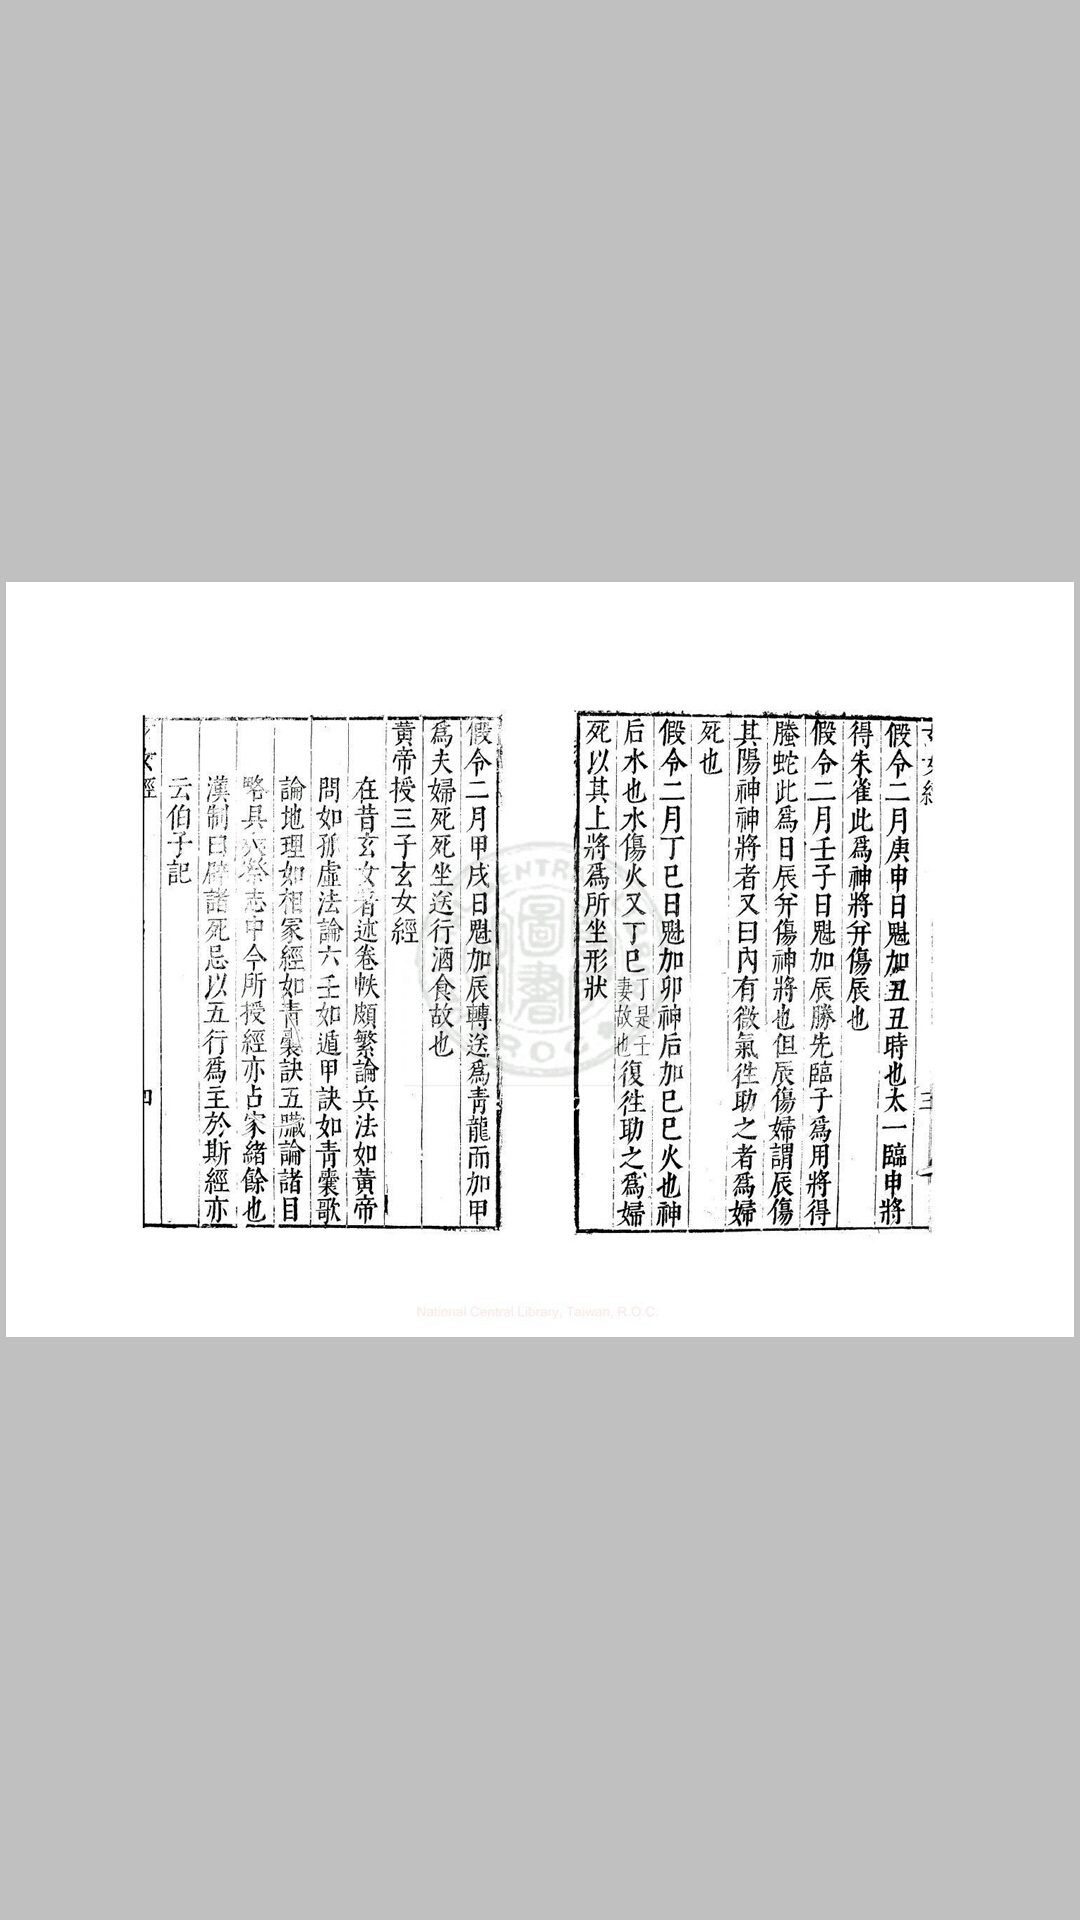 假令二月庚申日魁加丑丑時也太一臨申將
得朱雀此爲神將并傷辰也
假令二月壬子日魁加辰勝先臨子爲用將得
螣蛇此爲日辰并傷神將也但辰傷婦謂辰傷
其陽神神將者又曰內有微氣徃助之者爲婦
死也
假令二月丁巳日魁加卯神后加巳巳火也神
后水也水傷火又丁巳丁是壬妻故也復徃助之爲婦
死以其上將爲所坐形狀
假令二月甲戌日魁加辰轉送爲青龍而加甲
爲夫婦死死坐送行酒食故也
黃帝授三子玄女經
在昔玄女著述卷帙頗繁論兵法如黃帝
問如孤虛法論六壬如遁甲訣如青囊歌
論地理如相冢經如青囊訣五臟論諸目
略具志中今所授經亦占家緒餘也
漢制日辟諸死忌以五行爲主於斯經亦
云伯子記
女經
四
National Central Library, Taiwan, R.O.C.